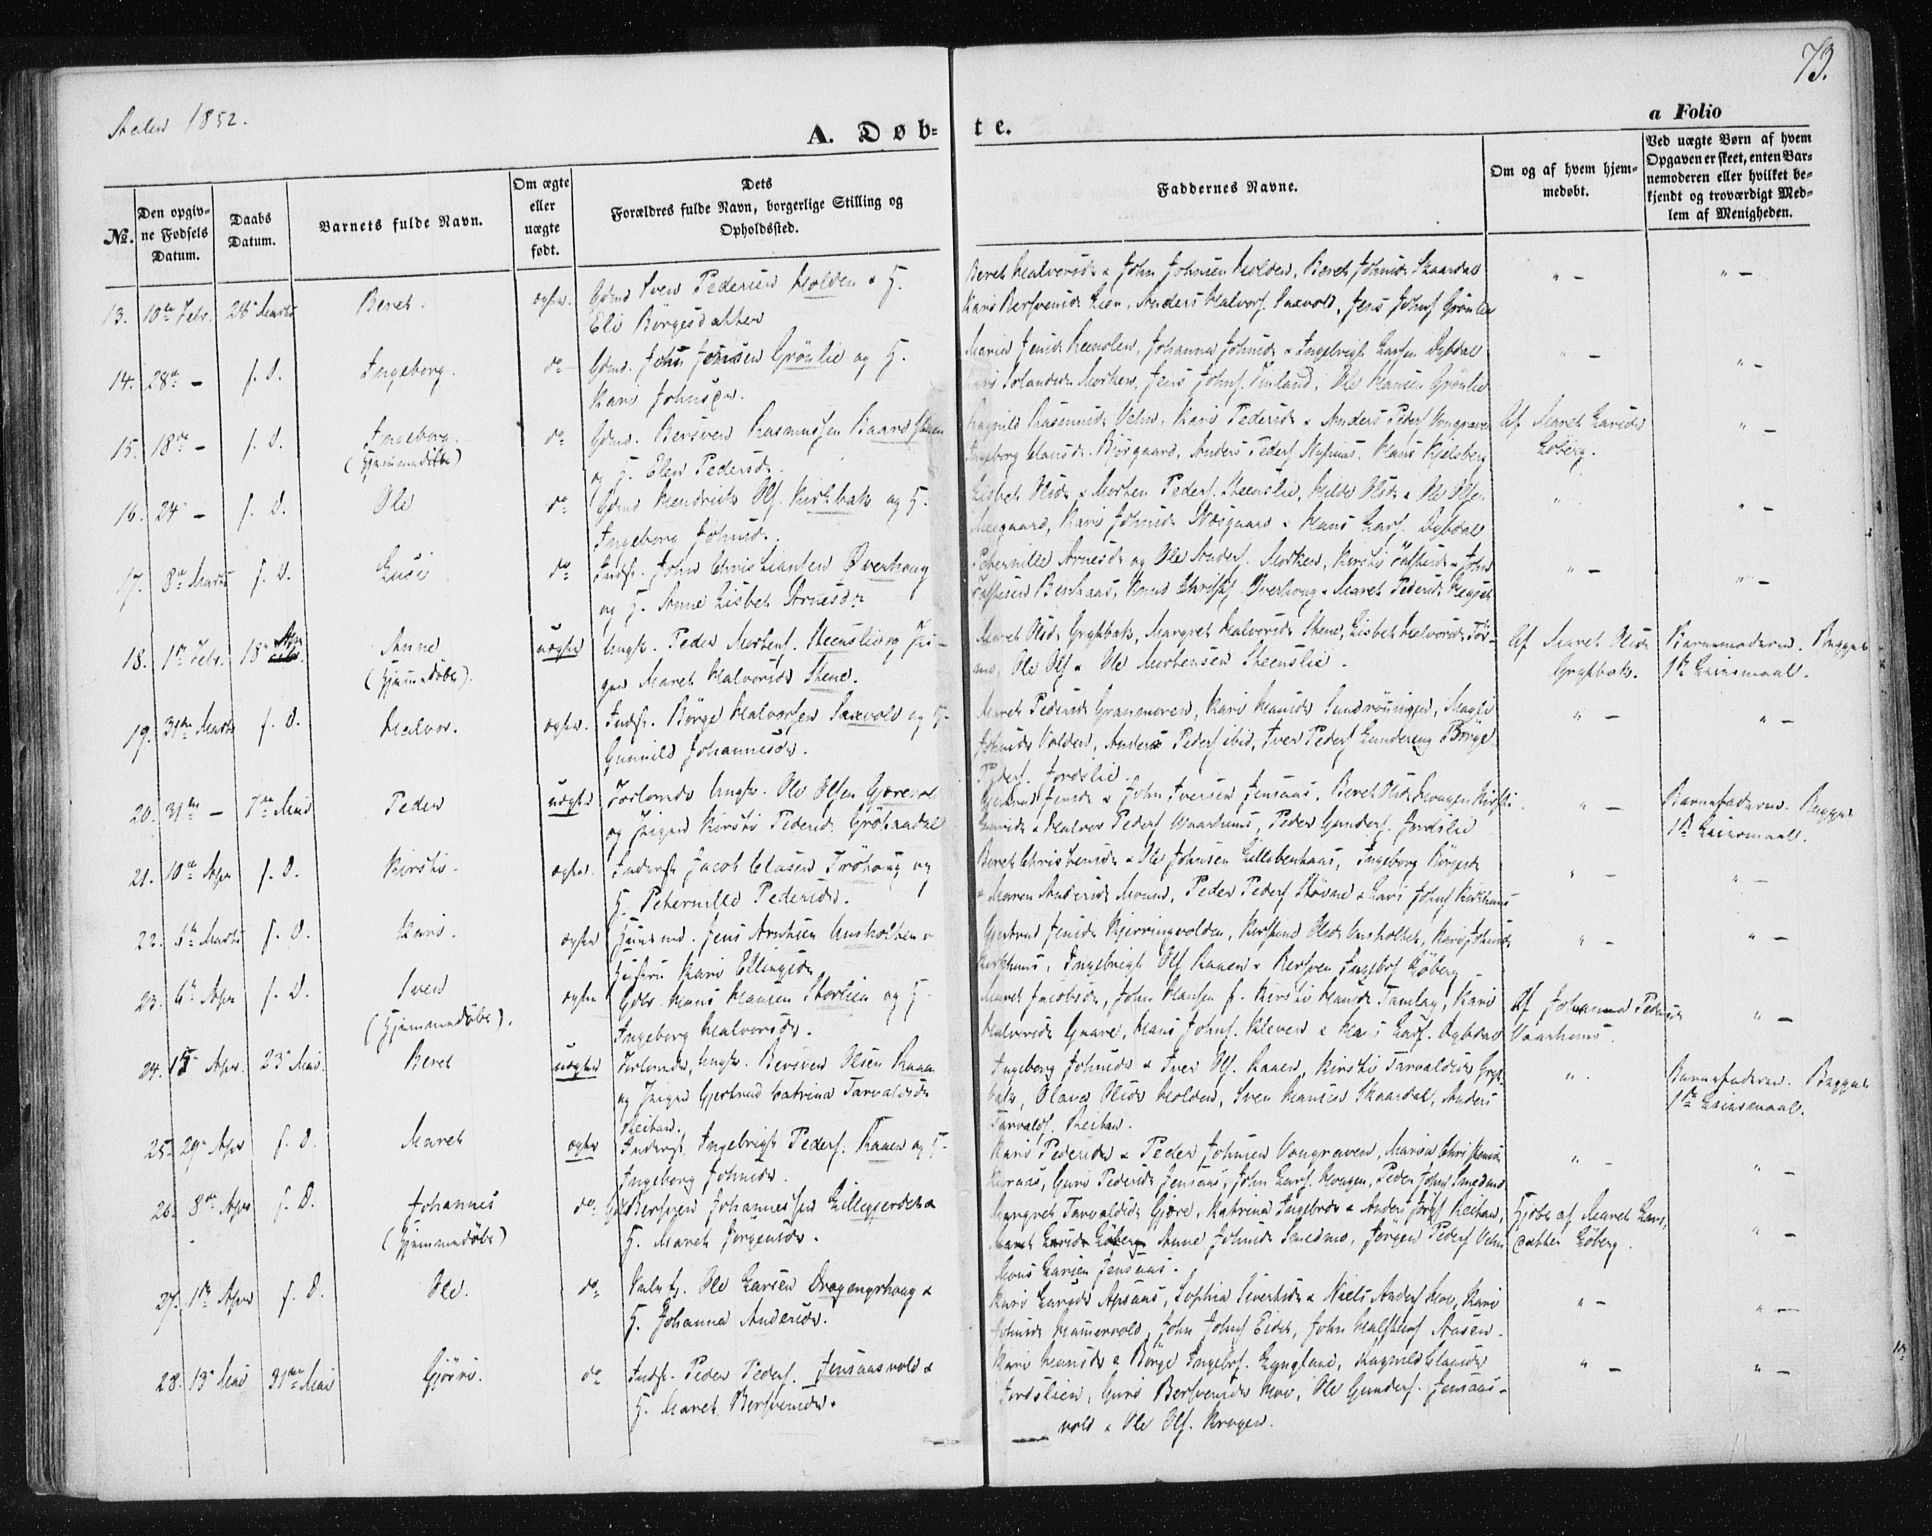 73.
Aalen 1852.
A. Døbte.
a Folio
No.
Den opgivne Fødsels Datum.
Daabs Datum.
Barnets fulde Navn.
Om ægte eller uægte født.
Dets Forældres fulde Navn, borgerlige Stilling og Opholdssted.
Faddernes Navne.
Om og af hvem hjemmedøbt.
Ved uægte Børn af hvem Opgaven er skeet, enten Barnemoderen eller hvilket bekjendt og troværdigt Medlem af Menigheden.
13. 10de Febr. 28 Marts Beret. ægte. Gdmd Sven Pedersen Holden & H.
Eli Børgesdatter
Beret Halvorsd. & John Johnsen Holden, Beret Johnsd. Skaardal
Kari Bersvensd. Lien, Anders Halvors. Saxvold, Jens Johns. Grønlie
14. 28de – f. D. Ingeborg. do Gdmd. John Jonsen Grønlie og H.
Kari Johnsen.
Maria Jensd. , Johanna Johnsd. & Ingebrigt Larsen Dybdal
Morken, Jens Johns. , Ole Hansen Grønlie
15. 18de – f. D. Ingeborg. (Hjemmedøbt) do Gdmd. Bersven Rasmussen Baardsteen
og H. Elen Pedersd.
Ragnild Rasmusd. Velve, Kari Pedersd. & Anders Peders. Vongraven
Ingeborg Clausd. Björgaard, Anders Peders. Nyhuus, Hans Kjelsberg
Af Maret Larsd. Løberg.
16. 24 – f. D. Ole do Gdmd Hendrick Ols. Kirkbak og H.
Ingeborg Johnsd.
Lisbet Olsd. & Morten Peders. Steenslie, Kari Johnsd. Næsgaard & Hans Lars. Dybdal
17. 8de Marts f. D. Lusie do Indst. John Christiansen Øverhaug
og H. Anne Lisbet Arnesd.
Pehernille Arnesd. og Ole Anders. Morken, Kirsti & John
Benhaas, Øverhaug & Maret Pedersd.
18. 1de Febr. 18 Apr Anne (Hjemmedøbt). uægte Ungk. Peder Mortens. Steenslie og Pigen
Maret Halvorsd. Stene.
Maret Olsd. Grythbak, Margret Halvorsd. Stene, Lisbet Halvorsd.
Ole Ols. & Ole Mortensen Steenslie.
Af Maret Olsd. Grythbak.
Barnemoderen. Begges 1ste Leiermaal.
19. 31te Marts f. D. Halvor. ægte. Indst. Börge Halvorsen Saxvold og H.
Gunnild Johannesd.
Maret Pedersd. Granmoren, Kari Hansd. , Magli
Johnsd. Volden, Anders Peders. ibid, Iver Peders. Lundereng, Börge
Peders. Jordslie.
20. 31te – 1ste Mai Peder uægte Forlovede Ungk. Ole Olsen Gjærevold
og Pigen Kirsti Pedersd. Gröhaadal
Gjertrud Jensd. & John Iversen Jensaas, Beret Olsd. Hougen, Kirsti
Larsd. & Halvor Peders. Waarhuus, Peder Gunders. Jordslie
Barnefaderen. Begges 1ste Leiermaal.
21. 10de Apr f. D. Kirsti. ægte. Inderst Jacob Clasen Tröhaug og
H. Pehernille Pedersd.
Beret Christensd. & Ole Johnsen Lillebenhaas, Ingeborg Börgesd.
& Maren Andersd. Moene, Peder Peders. Stövne & Lars Johns. Kirkhuus
22. Marts f. D. Kari. ægte Huusmd. Jens Arntsen Aasholten &
Hustru Kari Ellingsd.
Gjertrud Jensd. Kjerringvolden, Kirstine Olsd. Aasholten, Kari Johnsd.
Kirkhuus, Ingebrigt Ols. Raaen & Bersven Ingebr. Löberg
23. 6te Apr f. D. Sven (Hjemmedøbt). ægte Gdbr. Hans Hansen Stortien og H.
Ingeborg Halvorsd.
Maret Jacobsd., John Hansen f. Kirsti Hansd. Tamlag, Kari
Halvorsd. Gaare, Hans Johns. Kleven & Hans Lars. Dybdal
Af Johanna Pedersd. Vaarhuus.
24. 15 Apr. 23 Mai. Beret uægte Forlovede, Ungk. Bersven Olsen Raaen
og Pigen Gjertrud Catrina Tarvaldsd.
Reitan.
Ingeborg Johnsd. & Iver Ols. Raaen, Kirsti Tarvaldsd. Grythbak,
Olava Olsd. Holden, Sven Hansen Skaardal, Anders
Tarvalds. Reitan.
Barnefaderen. Begges 1ste Leiermaal.
25. 29 Apr f. D. Maret ægte Inderst Ingebrigt Peders. Raaen og H.
Ingeborg Johnsd.
Kari Pedersd. & Peder Johnsen Vongraven, Maria Christensd.
Kuraas, Guri Pedersd. Jensaas, John Lars. Hougen, Peder Johns. Smedmo
26. 8de Apr f. D. Johannes (Hjemmedøbt) do Gdmd Bersven Johannessen Lillegjerdet &
H. Maret Jørgensd.
Margret Tarvaldsd. Gjære, Katrina Ingebrd. & Anders Reitan,
Maret Larsd. Løberg Anne Johnsd. Smedmo, Jörgen Peders. Velve
Mons Larsen Jensaas.
Hjdøbt af Maret Larsdatter Løberg.
27. 1ste Apr f. D. Ole. do Ole Larsen Dragengshaug &
H. Johanna Andersd.
Kari Larsd. Apsaas, Sophia Sivertsd. & Niels Anders. Hov, Kari
Johnsd. Hammervold, John Johns. Eidet, John Aasen.
28. 13 Mai 31te Mai Gjöri. do Indst. Peder Peders. Jensaasvold &
H. Maret Bersvensd.
Kari Hansd. & Börge Ingebr. Lyngland, Ragnild Clausd.
Jordslien, Guri Bersvensd. Hov, Ole Gunders. Jensaasvold
& Ole Ols. Krogen.